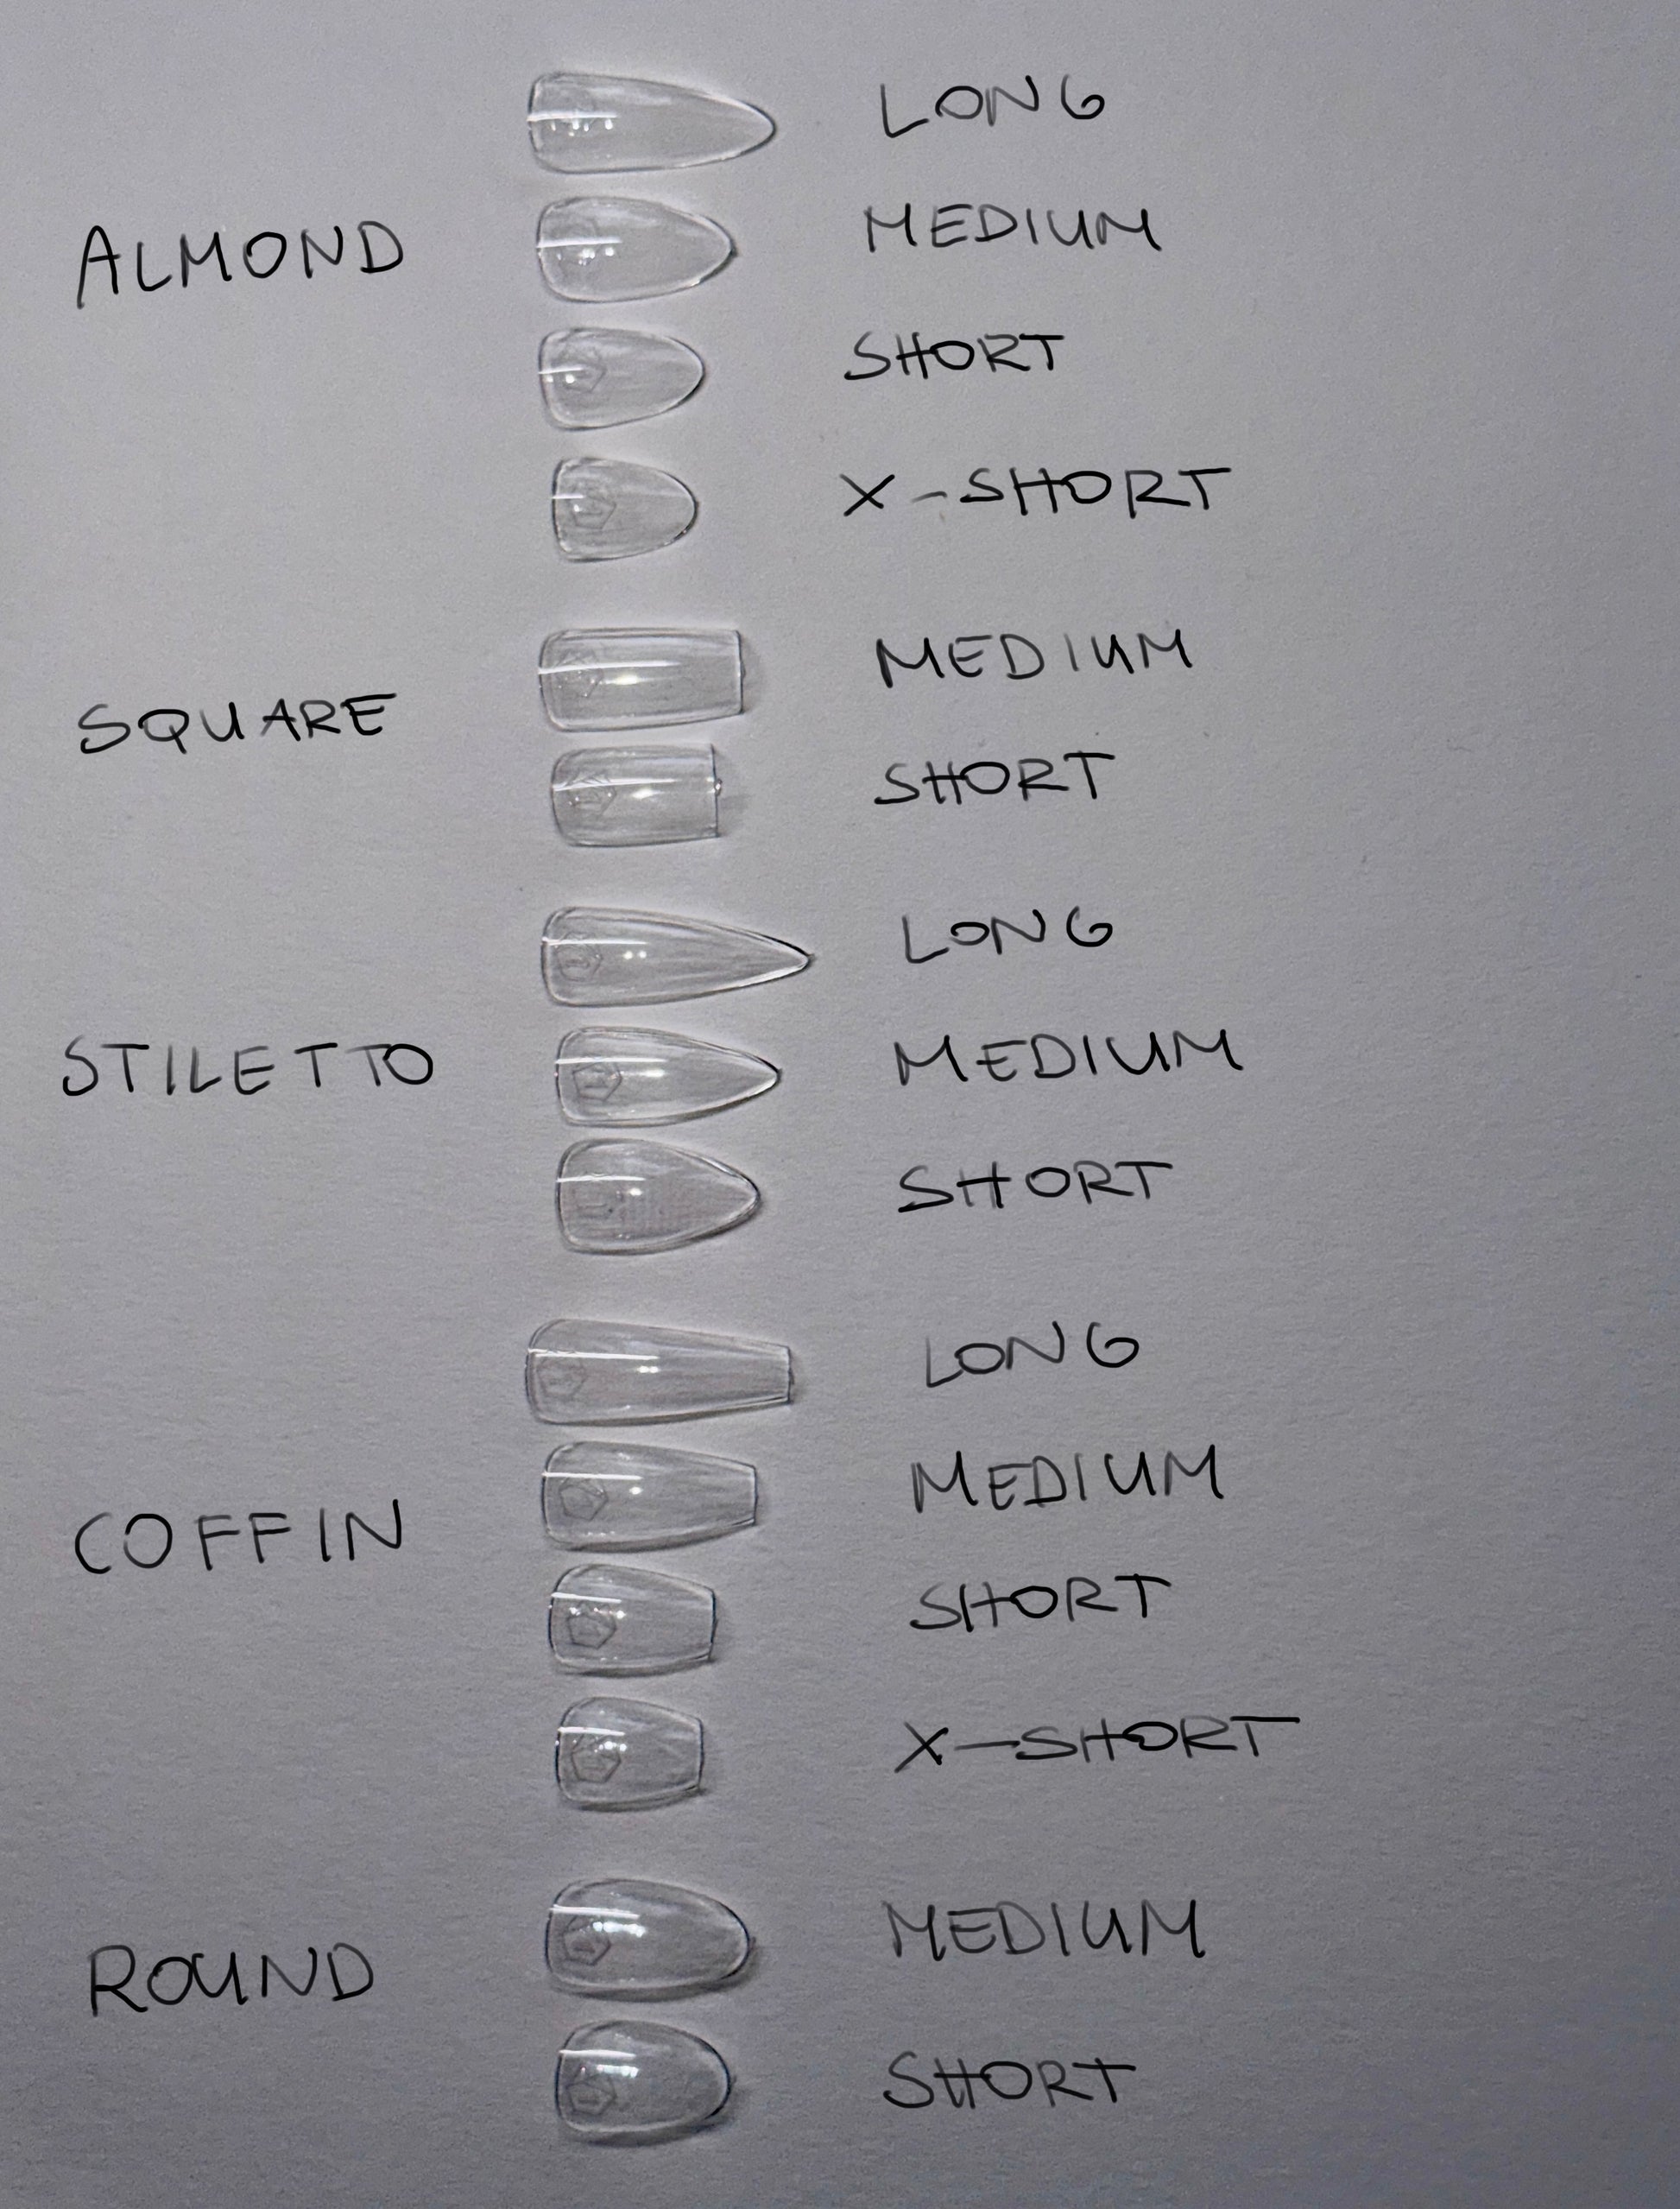 LONG
MEDIUM
ALMOND
SHORT
X-SHORT
MEDIUM
SQUARE
SHORT
LONG
STILETTO
MEDIUM
SHORT
LONG
MEDIUM
COFFIN
SHORT
X-SHORT
MEDIUM
ROUND
SHORT